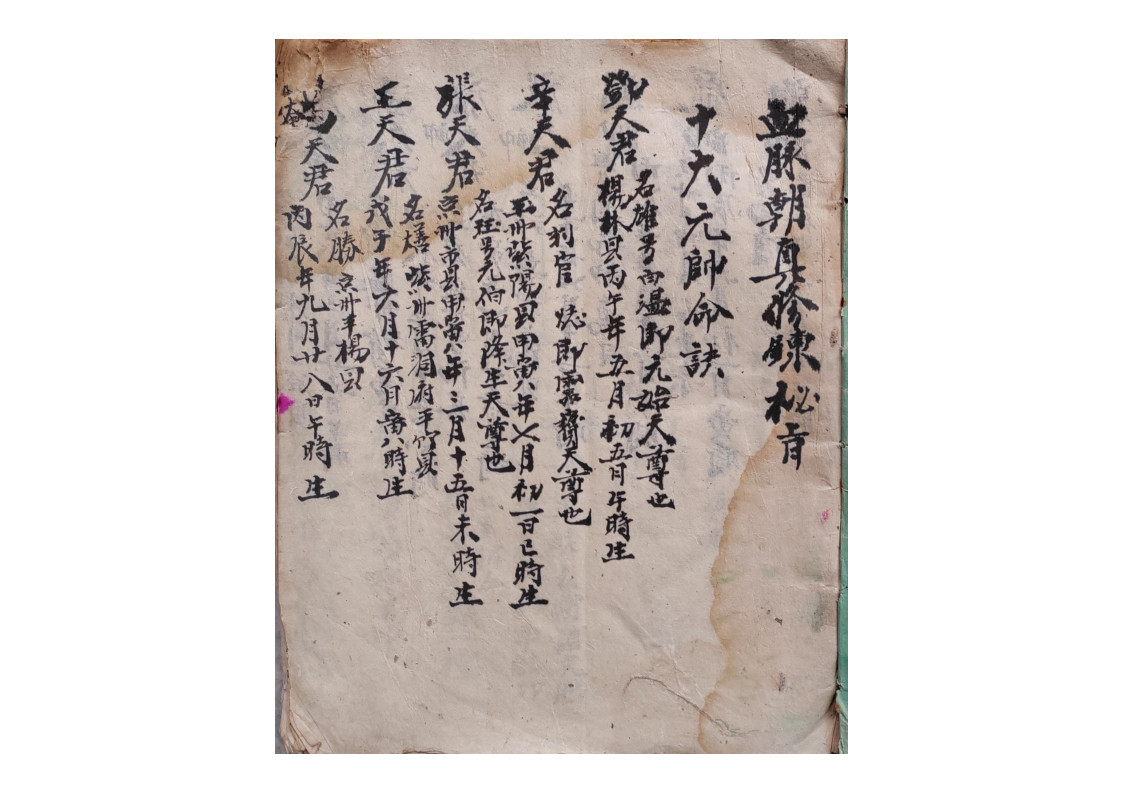 血脉朝真修煉秘旨
十六元帥命訣
鄧天君
名雄号向温即元始天尊也
楊林县丙午年五月初五日午時生
辛天君
名判官 即靈寶天尊也
玉州紫陽县甲寅年七月初一日巳時生
張天君
名珏号元伯即降生天尊也
京州市县甲寅年三月十五日未時生
王天君
名 紫州雷洞府平 县
戊子年六月十六日寅時生
天君
名勝 京州羊楊县
丙辰年九月廿八日午時生